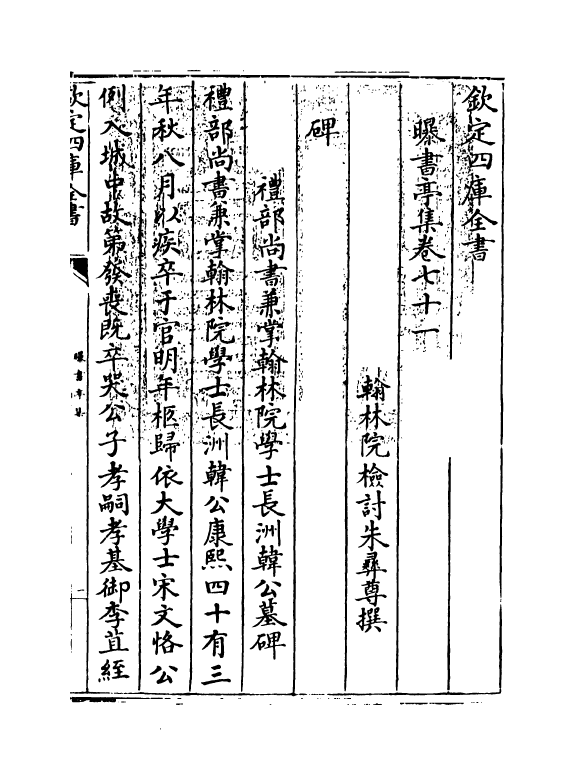 欽定四庫全書
曝書亭集卷七十一
翰林院檢討朱彝尊撰
碑
禮部尚書兼掌翰林院學士長洲韓公墓碑
禮部尚書兼掌翰林院學士長洲韓公康熙四十有三
年秋八月以疾卒于官明年柩歸依大學士宋文恪公
例入城中故第發喪既卒哭公子孝嗣孝基御李苴絰
欽定四庫全書
曝書亭集
一